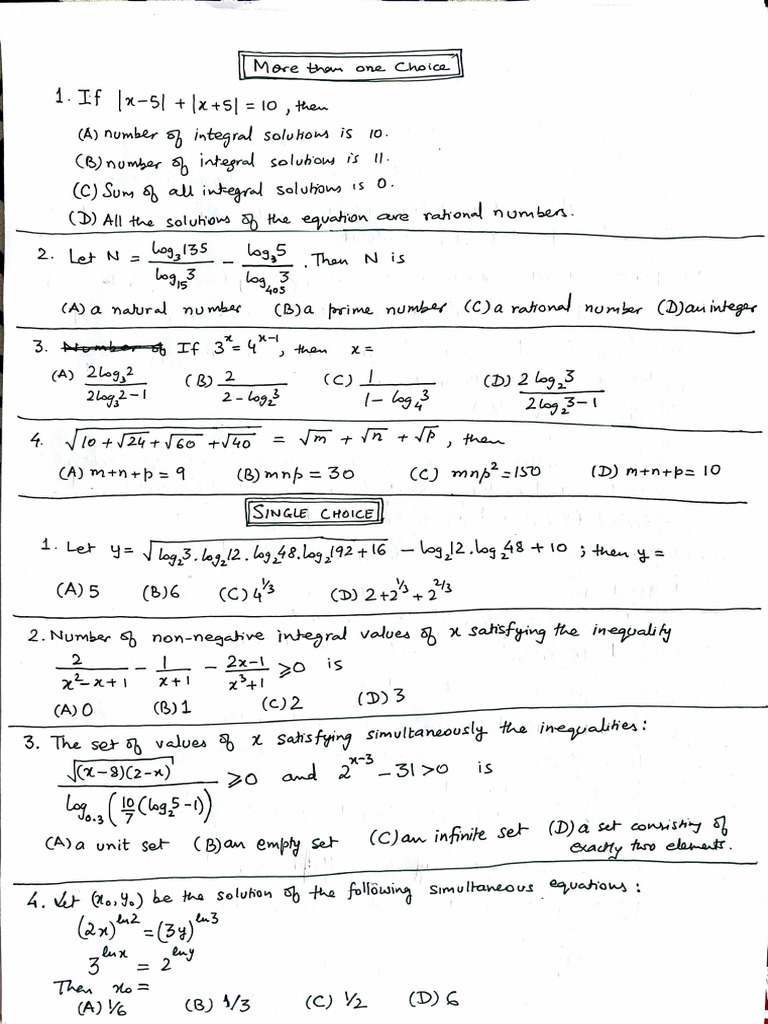 More than one Choice
1. If |x-5| + |x+5| = 10, then
(A) number of integral solutions is 10.
(B) number of integral solutions is 11.
(C) Sum of all integral solutions is 0.
(D) All the solutions of the equation are rational numbers.
2. Let N = log₃135 / log₁₅3 − log₃5 / log₄₀₅3 . Then N is
(A) a natural number (B) a prime number (C) a rational number (D) an integer
3. Number of If 3^x = 4^(x-1), then x =
(A) 2log₃2 / (2log₃2 − 1) (B) 2 / (2 − log₂3) (C) 1 / (1 − log₄3) (D) 2log₂3 / (2log₂3 − 1)
4. √(10 + √24 + √60 + √40) = √m + √n + √p, then
(A) m+n+p = 9 (B) mnp = 30 (C) mnp² = 150 (D) m+n+p = 10
SINGLE CHOICE
1. Let y = √(log₂3 . log₂12 . log₂48 . log₂192 + 16) − log₂12 . log₂48 + 10 ; then y =
(A) 5 (B) 6 (C) 4^(1/3) (D) 2 + 2^(1/3) + 2^(2/3)
2. Number of non-negative integral values of x satisfying the inequality
2 / (x² − x + 1) − 1 / (x+1) − (2x−1) / (x³+1) ⩾ 0 is
(A) 0 (B) 1 (C) 2 (D) 3
3. The set of values of x satisfying simultaneously the inequalities:
√((x−8)(2−x)) / log₀.₃(10/7 (log₂5 − 1)) ⩾ 0 and 2^(x−3) − 31 > 0 is
(A) a unit set (B) an empty set (C) an infinite set (D) a set consisting of
exactly two elements.
4. Let (x₀, y₀) be the solution of the following simultaneous equations:
(2x)^(ln2) = (3y)^(ln3)
3^(lnx) = 2^(lny)
Then x₀ =
(A) 1/6 (B) 1/3 (C) 1/2 (D) 6